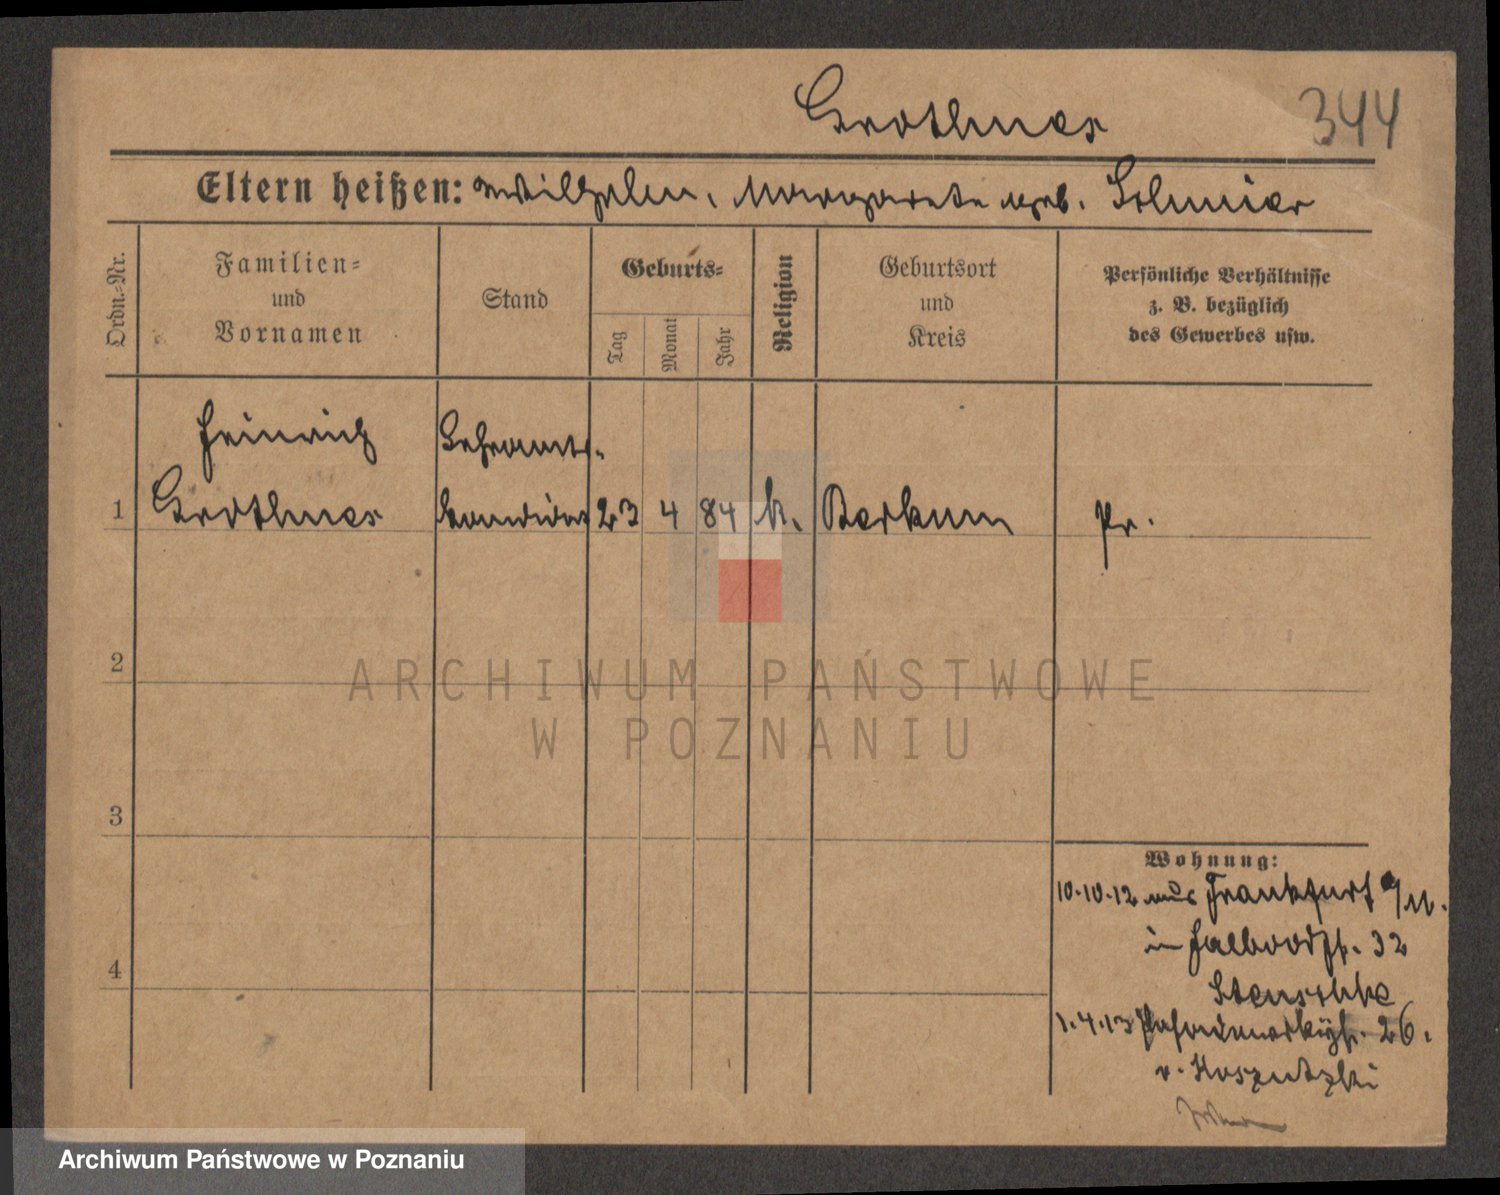 Grothues
344
Eltern heißen: Wilhelm, Margarete geb. Schmier
Ordn.-Nr.
Familien-
und
Vornamen
Stand
Geburts-
Tag
Monat
Jahr
Religion
Geburtsort
und
Kreis
Persönliche Verhältnisse
z. B. bezüglich
des Gewerbes usw.
Heinrich
Lehramts-
1
Grothues
kandidat
23
4
84
k.
Berkum
Pr.
2
3
4
Wohnung:
10.10.12 aus Frankfurt a/M.
in Halbdorfstr. 32
Stenschke
1.4.13 26.
v. Koszutzki
ARCHIWUM PAŃSTWOWE
W POZNANIU
Archiwum Państwowe w Poznaniu